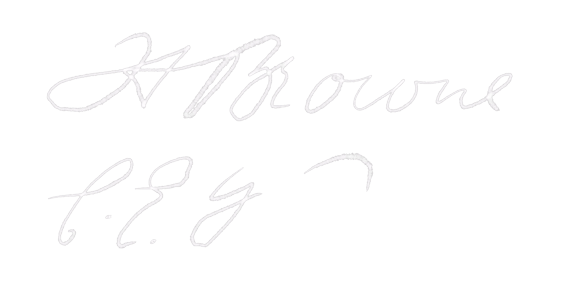 H Browne
C. E. Y